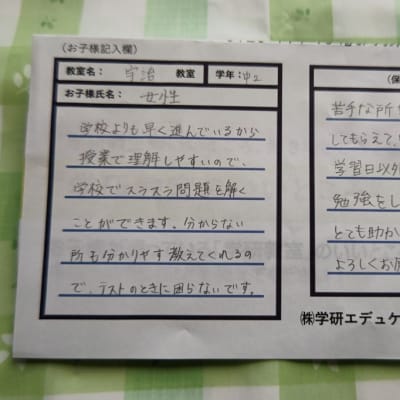 (お子様記入欄)
教室名： 宇治 教室 学年：中2
お子様氏名： 女性
学校よりも早く進んでいるから
授業で理解しやすいので、
学校でスラスラ問題を解く
ことができます。分からない
所も分かりやす教えてくれるの
で、テストのときに困らないです。
(保
苦手な所
してもらえて、
学習日以外
勉強をし
とても助か
よろしくお
㈱学研エデュケ